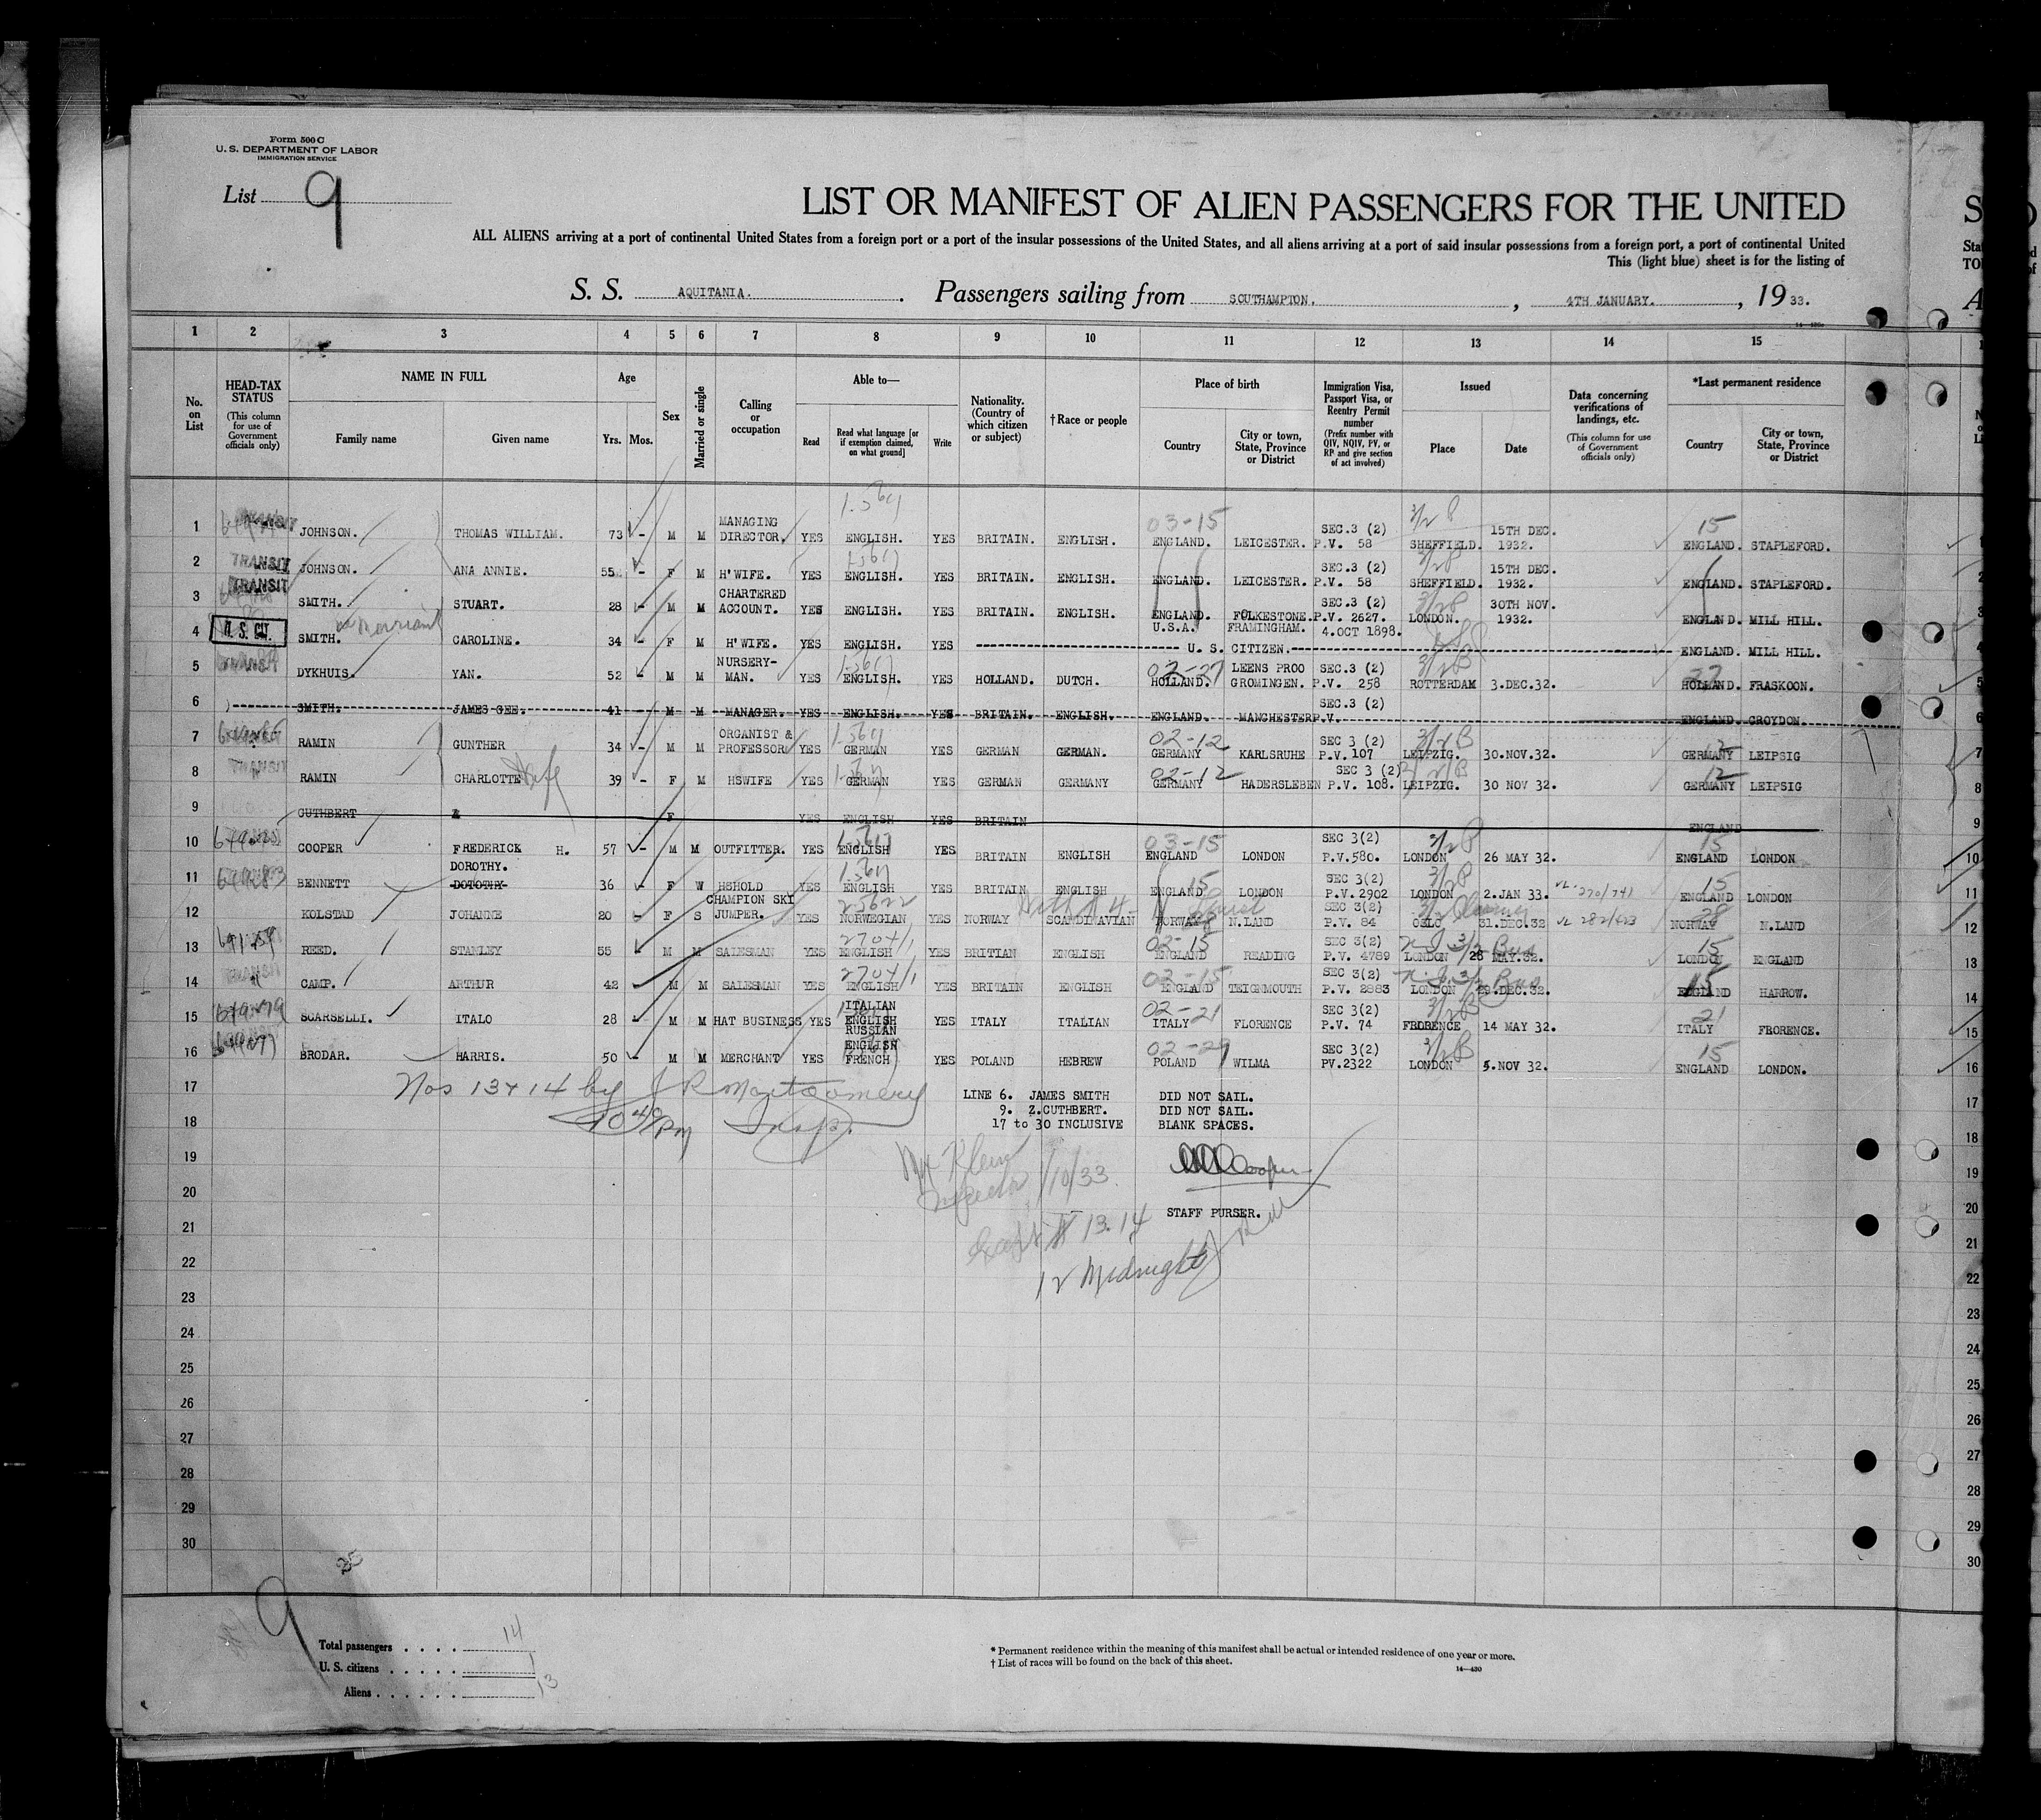 Form 500 C
U. S. DEPARTMENT OF LABOR
IMMIGRATION SERVICE
List 9
LIST OR MANIFEST OF ALIEN PASSENGERS FOR THE UNITED
ALL ALIENS arriving at a port of continental United States from a foreign port or a port of the insular possessions of the United States, and all aliens arriving at a port of said insular possessions from a foreign port, a port of continental United
This (light blue) sheet is for the listing of
S. S. AQUITANIA. Passengers sailing from SOUTHAMPTON, 4TH JANUARY. , 19 33.
1 2 3 4 5 6 7 8 9 10 11 12 13 14 15
No. on List
HEAD-TAX STATUS (This column for use of Government officials only)
NAME IN FULL Family name Given name
Age Yrs. Mos.
Sex
Married or single
Calling or occupation
Able to— Read Read what language [or if exemption claimed, on what ground] Write
Nationality. (Country of which citizen or subject)
† Race or people
Place of birth Country City or town, State, Province or District
Immigration Visa, Passport Visa, or Reentry Permit number (Prefix number with QIV, NQIV, PV, or RP and give section of act involved)
Issued Place Date
Data concerning verifications of landings, etc. (This column for use of Government officials only)
*Last permanent residence Country City or town, State, Province or District
1 TRANSIT JOHNSON. THOMAS WILLIAM. 73 - M M MANAGING DIRECTOR. YES ENGLISH. YES BRITAIN. ENGLISH. 03-15 ENGLAND. LEICESTER. SEC.3 (2) P.V. 58 SHEFFIELD. 15TH DEC. 1932. 15 ENGLAND. STAPLEFORD.
2 TRANSIT JOHNSON. ANA ANNIE. 55 - F M H'WIFE. YES ENGLISH. YES BRITAIN. ENGLISH. ENGLAND. LEICESTER. SEC.3 (2) P.V. 58 SHEFFIELD. 15TH DEC. 1932. ENGLAND. STAPLEFORD.
3 TRANSIT SMITH. STUART. 28 - M M CHARTERED ACCOUNT. YES ENGLISH. YES BRITAIN. ENGLISH. ENGLAND. FOLKESTONE. SEC.3 (2) P.V. 2627. LONDON. 30TH NOV. 1932. ENGLAND. MILL HILL.
4 U. S. CIT. SMITH. CAROLINE. 34 - F M H'WIFE. YES ENGLISH. YES U.S.A. FRAMINGHAM. 4.OCT 1898. U. S. CITIZEN. ENGLAND. MILL HILL.
5 DYKHUIS. YAN. 52 - M M NURSERY-MAN. YES ENGLISH. YES HOLLAND. DUTCH. 02-27 HOLLAND. LEENS PROO GROMINGEN. SEC.3 (2) P.V. 258 ROTTERDAM 3.DEC.32. 27 HOLLAND. FRASKOON.
6 SMITH. JAMES GEE. 41 - M M MANAGER. YES ENGLISH. YES BRITAIN. ENGLISH. ENGLAND. MANCHESTER SEC.3 (2) P.V. ENGLAND CROYDON
7 RAMIN GUNTHER 34 - M M ORGANIST & PROFESSOR YES GERMAN YES GERMAN GERMAN. 02-12 GERMANY KARLSRUHE SEC 3 (2) P.V. 107 LEIPZIG. 30.NOV.32. 12 GERMANY LEIPSIG
8 TRANSIT RAMIN CHARLOTTE Wife 39 - F M HSWIFE YES GERMAN YES GERMAN GERMANY 02-12 GERMANY HADERSLEBEN SEC 3 (2) P.V. 108. LEIPZIG. 30 NOV 32. 12 GERMANY LEIPSIG
9 CUTHBERT Z F YES ENGLISH YES BRITAIN ENGLAND
10 COOPER FREDERICK H. 57 - M M OUTFITTER. YES ENGLISH YES BRITAIN ENGLISH 03-15 ENGLAND LONDON SEC 3(2) P.V.580. LONDON 26 MAY 32. 15 ENGLAND LONDON
11 BENNETT DOROTHY. DOTOTHY 36 - F W HSHOLD YES ENGLISH YES BRITAIN ENGLISH 15 ENGLAND LONDON SEC 3(2) P.V.2902 LONDON 2.JAN 33. 270/741 15 ENGLAND LONDON
12 KOLSTAD JOHANNE 20 - F S CHAMPION SKI JUMPER. YES 25622 NORWEGIAN YES NORWAY SCANDINAVIAN NORWAY N.LAND SEC 3(2) P.V. 84 OSLO 31.DEC.32 28 NORWAY N.LAND
13 REED. STANLEY 55 - M M SALESMAN YES 2704/1 ENGLISH YES BRITIAN ENGLISH 02-15 ENGLAND READING SEC 3(2) P.V. 4789 LONDON 28 MAY.32. 15 LONDON ENGLAND
14 CAMP. ARTHUR 42 - M M SALESMAN YES 2704/1 ENGLISH YES BRITAIN ENGLISH 02-15 ENGLAND TEIGNMOUTH SEC 3(2) P.V. 2883 LONDON 29.DEC.32. 15 ENGLAND HARROW.
15 SCARSELLI. ITALO 28 - M M HAT BUSINESS YES ITALIAN ENGLISH RUSSIAN YES ITALY ITALIAN 02-21 ITALY FLORENCE SEC 3(2) P.V. 74 FRORENCE 14 MAY 32. 21 ITALY FRORENCE.
16 BRODAR. HARRIS. 50 - M M MERCHANT YES ENGLISH FRENCH YES POLAND HEBREW 02-29 POLAND WILMA SEC 3(2) PV.2322 LONDON 5.NOV 32. 15 ENGLAND LONDON.
17 Nos 13 + 14 by J R Montgomery LINE 6. JAMES SMITH DID NOT SAIL.
9. Z.CUTHBERT. DID NOT SAIL.
18 Insp. 17 to 30 INCLUSIVE BLANK SPACES.
19 Klein
20 Inspector 1/10/33 STAFF PURSER.
21 Except # 13. 14
22 12 Midnight
23
24
25
26
27
28
29
30
9
Total passengers . . . . 14
U. S. citizens . . . . . 1
Aliens . . . . . . 13
* Permanent residence within the meaning of this manifest shall be actual or intended residence of one year or more.
† List of races will be found on the back of this sheet.
14—430